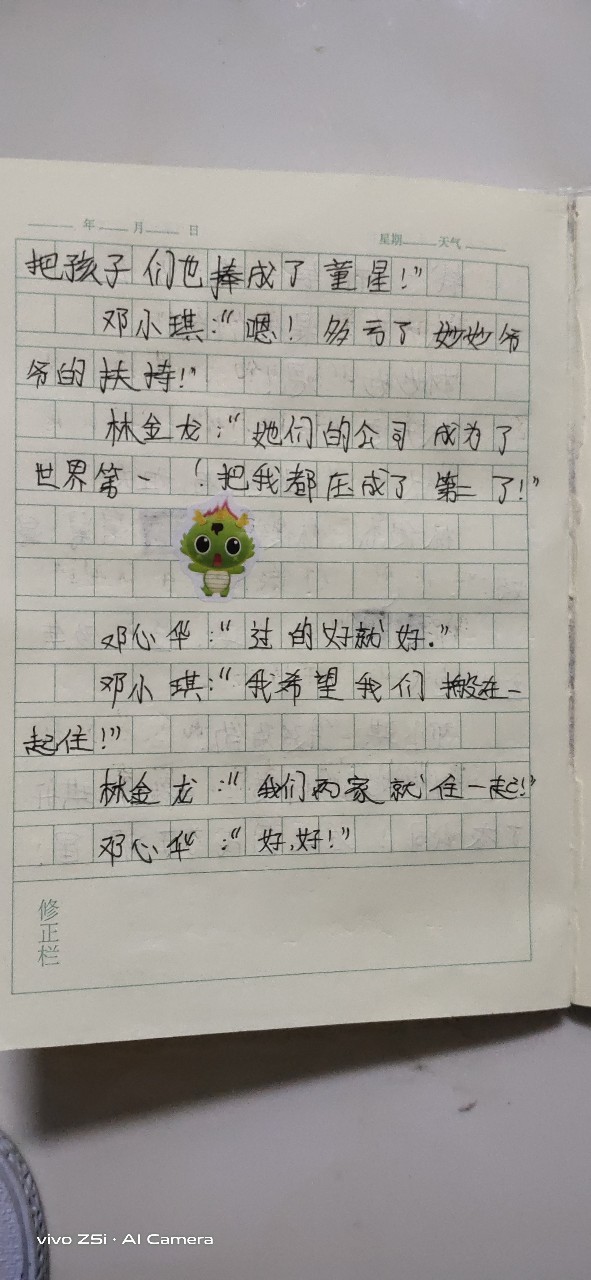 年 月 日 星期 天气
把孩子们也捧成了童星！”
邓小琪：“嗯！多亏了妙妙爷
爷的扶持！”
林金龙：“她们的公司成为了
世界第一！把我都压成了第二了！”
邓心华：“过的好就好.”
邓小琪：“我希望我们搬在一
起住！”
林金龙：“我们两家就住一起！”
邓心华：“好,好！”
修正栏
vivo Z5i · AI Camera